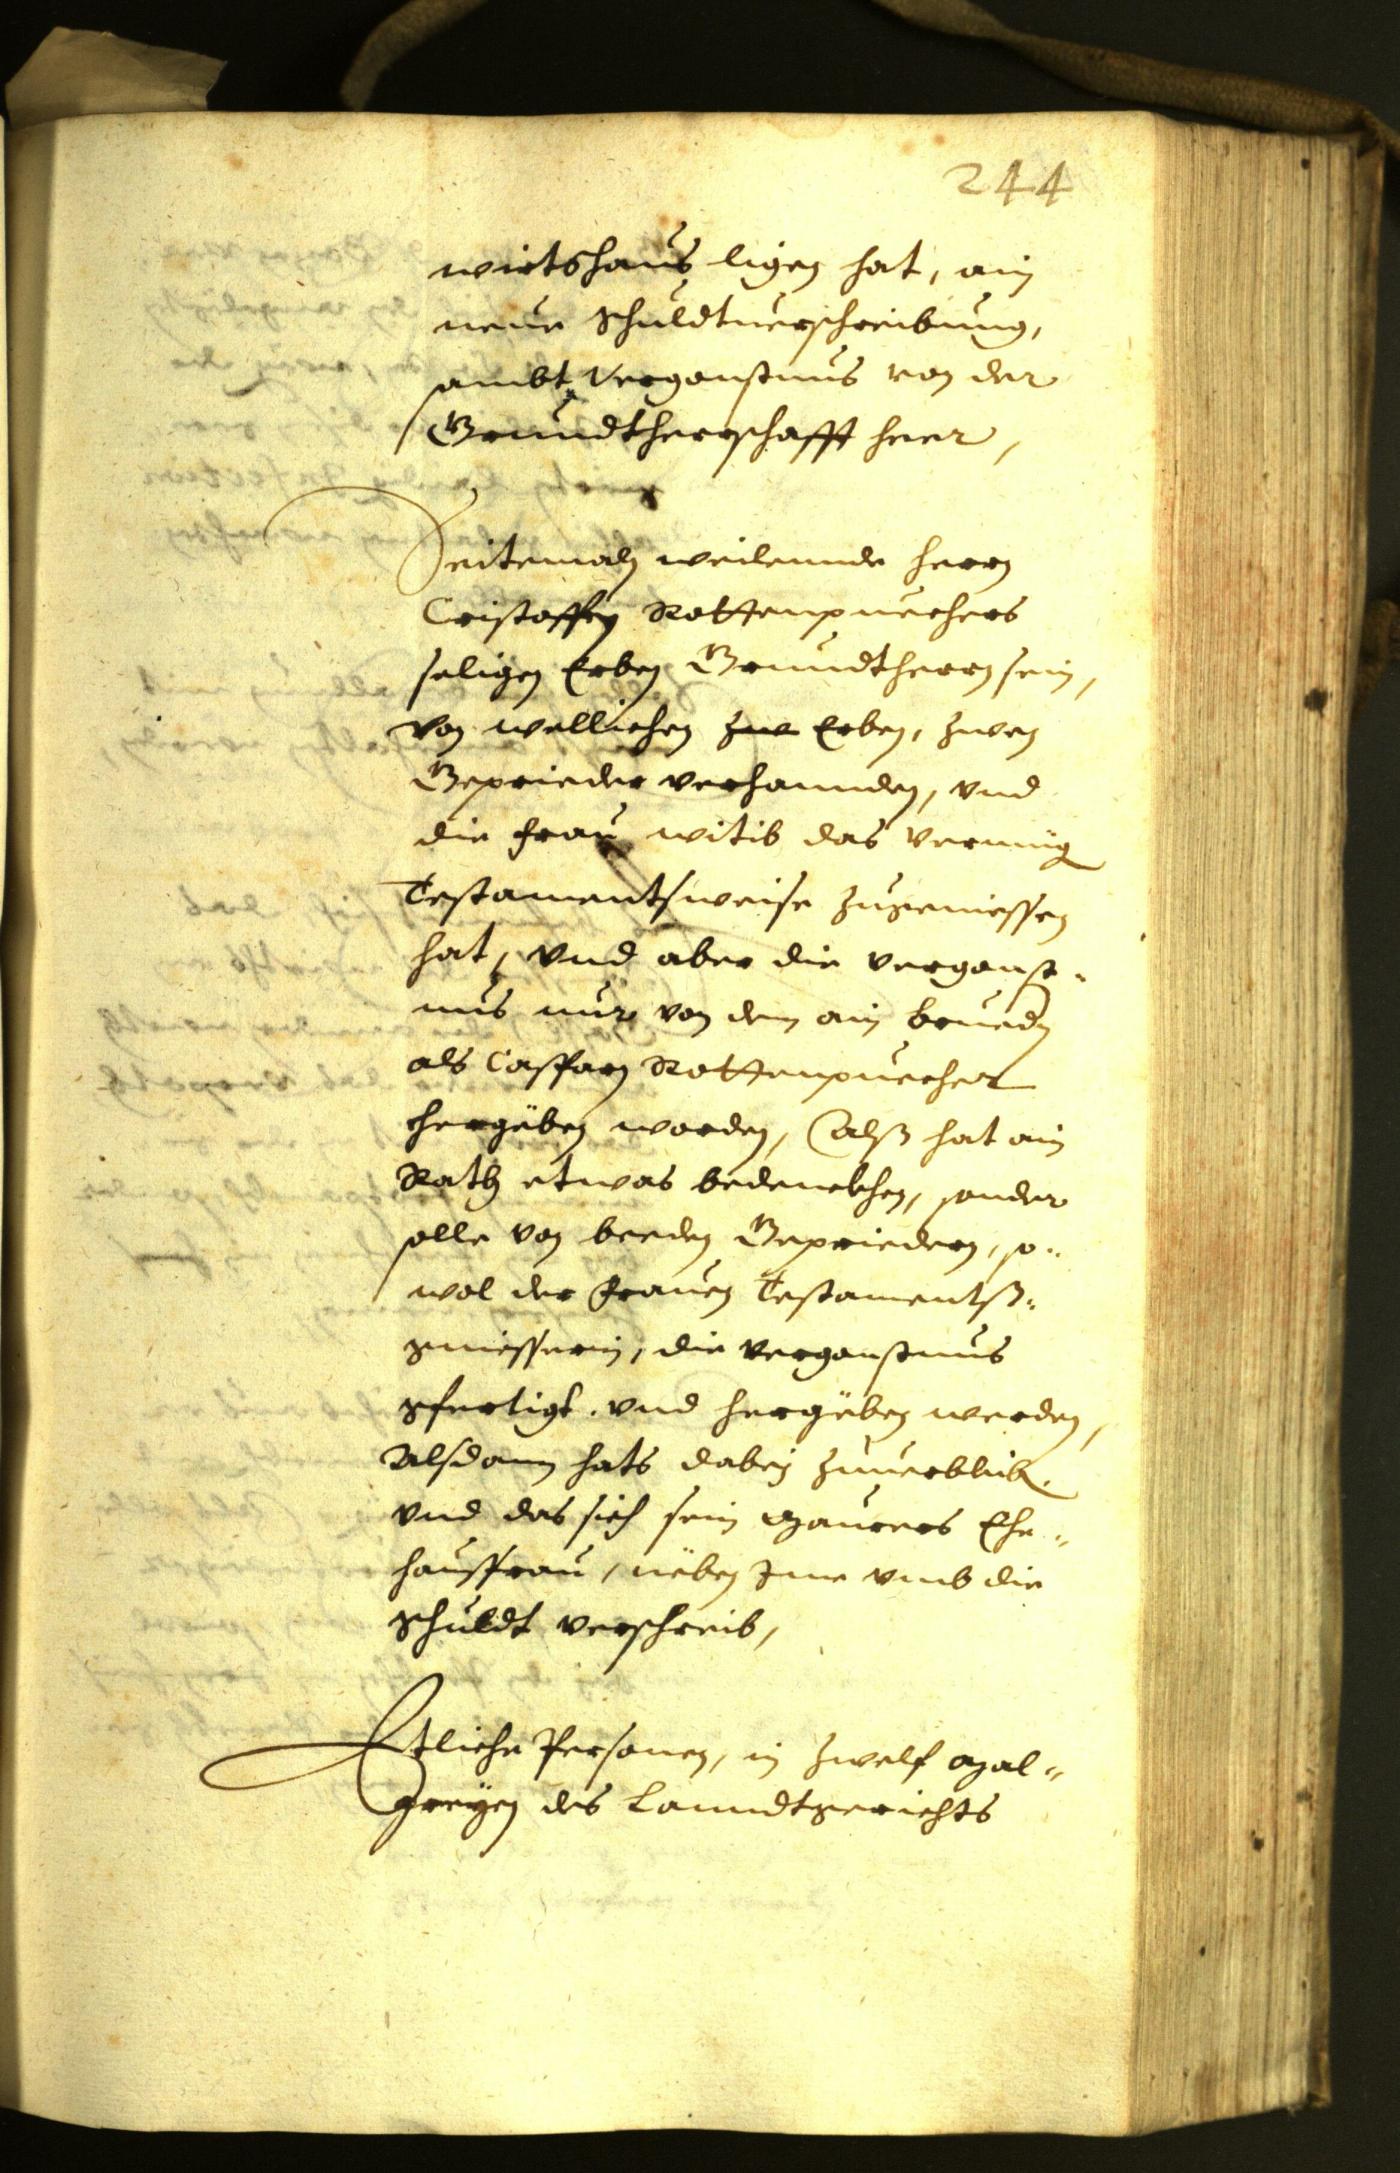 244
wirtshaus ligen hat, ain
neue schuldtuerschreibung,
sambt Vergonstnus von der
Grundtherrschafft heer,
Seitemaln weilennde herrn
Cristoffen Rottenpuechers
seligen Erben Grundtherrn sein,
von wellichen zwe Erben, zwen
Geprieder verhannden, vnd
die Frau witib das vermüg
Testamentsweise zugeniessen
hat, vnd aber die vergonst-
nus nur von dem ain bruedern
als Casparn Rottenpuecher
hergeben worden, Alß hat ain
Rath etwas bedenckhen, sonder
solle von beeden Gepriedern, so-
wol der Frauen Testamentß-
gniesserin, die vergonstnus
gfertigt vnd hergeben werden,
Alsdann hats dabey zuuerbleib.
vnd das sich sein Maurers Ehe-
hausfrau, neben Ime vmb die
schuldt verschreib,
Etliche Personen, in zwelf Mal-
greyen des Lanndtgerichts